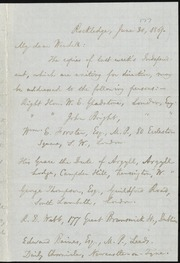 Rockledge, June 20, 1867.
My dear Wendell:
The copies of last week's Independent, which are waiting for direction, may
be addressed to the following persons:
Right Hon. W. E. Gladstone, London, Eng.
" John Bright, "
Wm. E. Forster, Esq., M. P., 80 Eccleston
Square, S. W., London
His Grace the Duke of Argyll, Argyll
Lodge, Campden Hill, Kensington, W
George Thompson, Esq., Guildford Road,
South Lambeth, London
R. D. Webb, 177 Great Brunswick St., Dublin
Edward Baines, Esq., M. P., Leeds.
Daily Chronicle, Newcastle-on-Tyne.